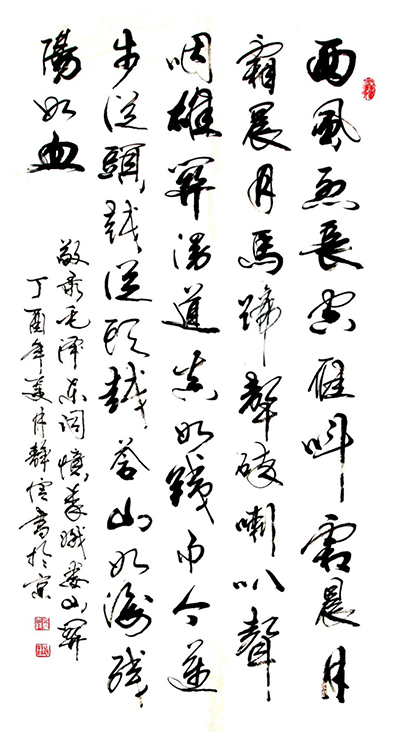 西風烈長空雁叫霜晨月
霜晨月馬蹄聲碎喇叭聲
咽雄關漫道真如鐵而今邁
步從頭越從頭越蒼山如海殘
陽如血
敬录毛泽东词憶秦娥娄山關
丁酉年静書於京